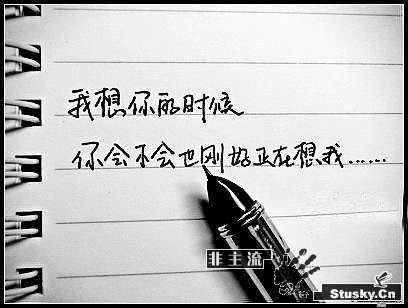 我想你的时候
你会不会也刚好正在想我......
非主流
Stusky.Cn